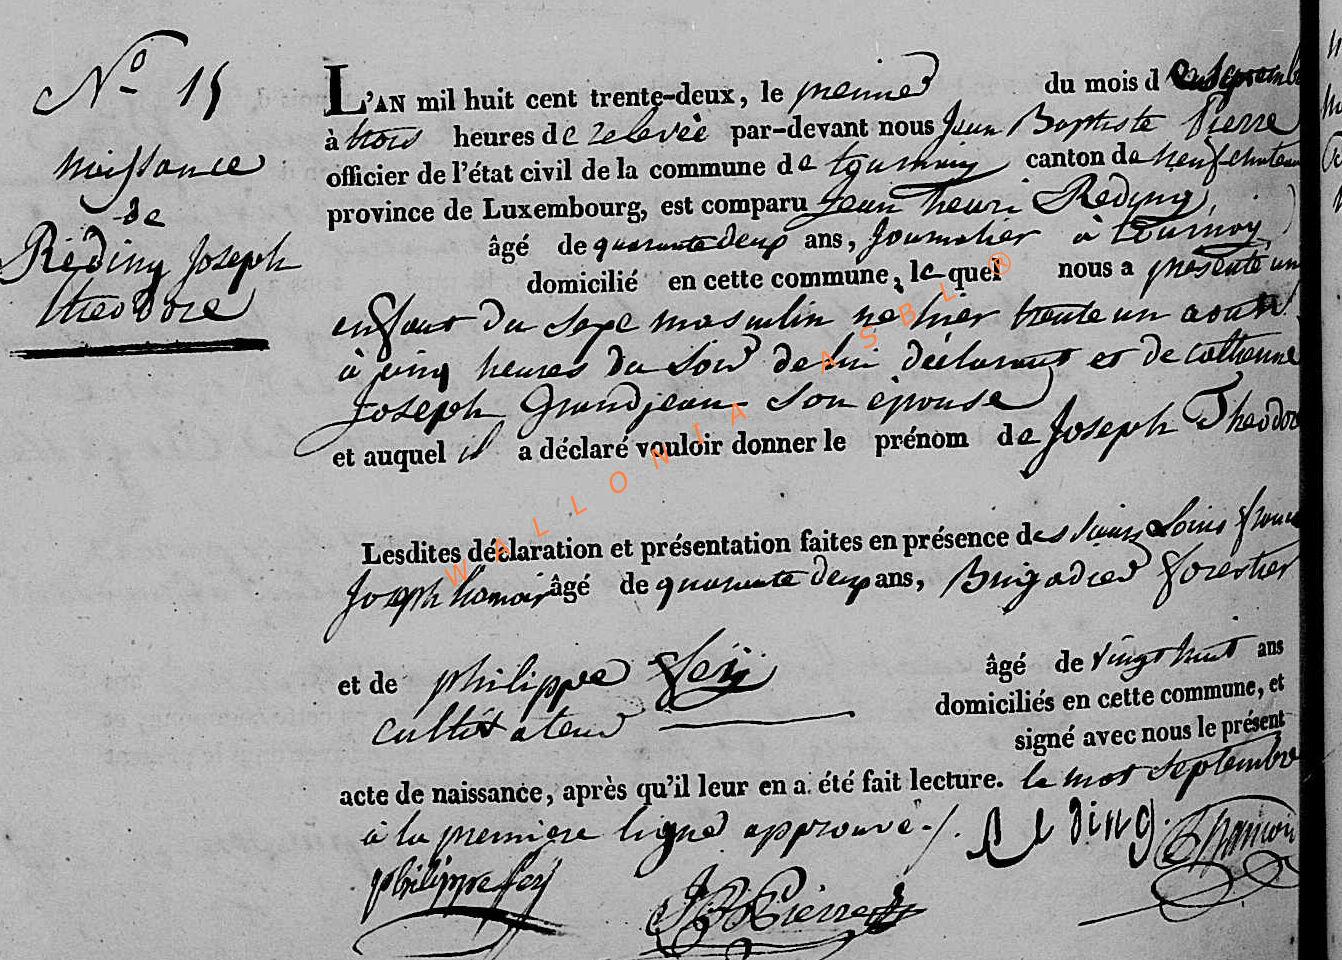 No 15
naissance
de
Réding Joseph
théodore
L'AN mil huit cent trente-deux, le premier du mois d
à trois heures de relevée par-devant nous Jean Baptiste Pierre
officier de l'état civil de la commune de tournay canton de neufchateau
province de Luxembourg, est comparu Jean henri Réding,
âgé de quarante deux ans, Journalier à tournay
domicilié en cette commune, lequel nous a présenté un
enfant du sexe masculin né hier trente un aout
à cinq heures du soir de lui déclarant et de catherine
Joseph Grandjean son épouse
et auquel il a déclaré vouloir donner le prénom de Joseph Théodore
Lesdites déclaration et présentation faites en présence des
Joseph hamoir âgé de quarante deux ans, Brigadier forestier
et de philippe féy âgé de vingt huit ans
cultivateur domiciliés en cette commune, et
signé avec nous le présent
acte de naissance, après qu'il leur en a été fait lecture. le mot septembre
à la première ligne approuvé ./.
Reding. hamoir
philippe fey JB Pierre
WALLONIA ASBL ®